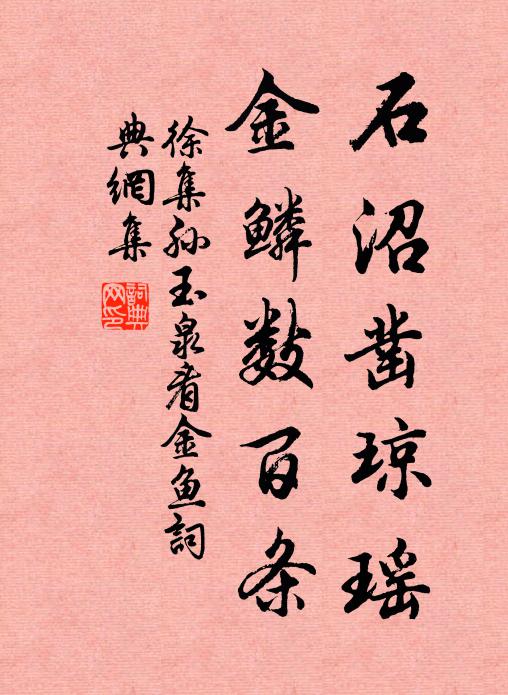 石沼凿琼瑶
金鳞数百条
徐集孙玉泉看金鱼詞
典網集
詞典网印